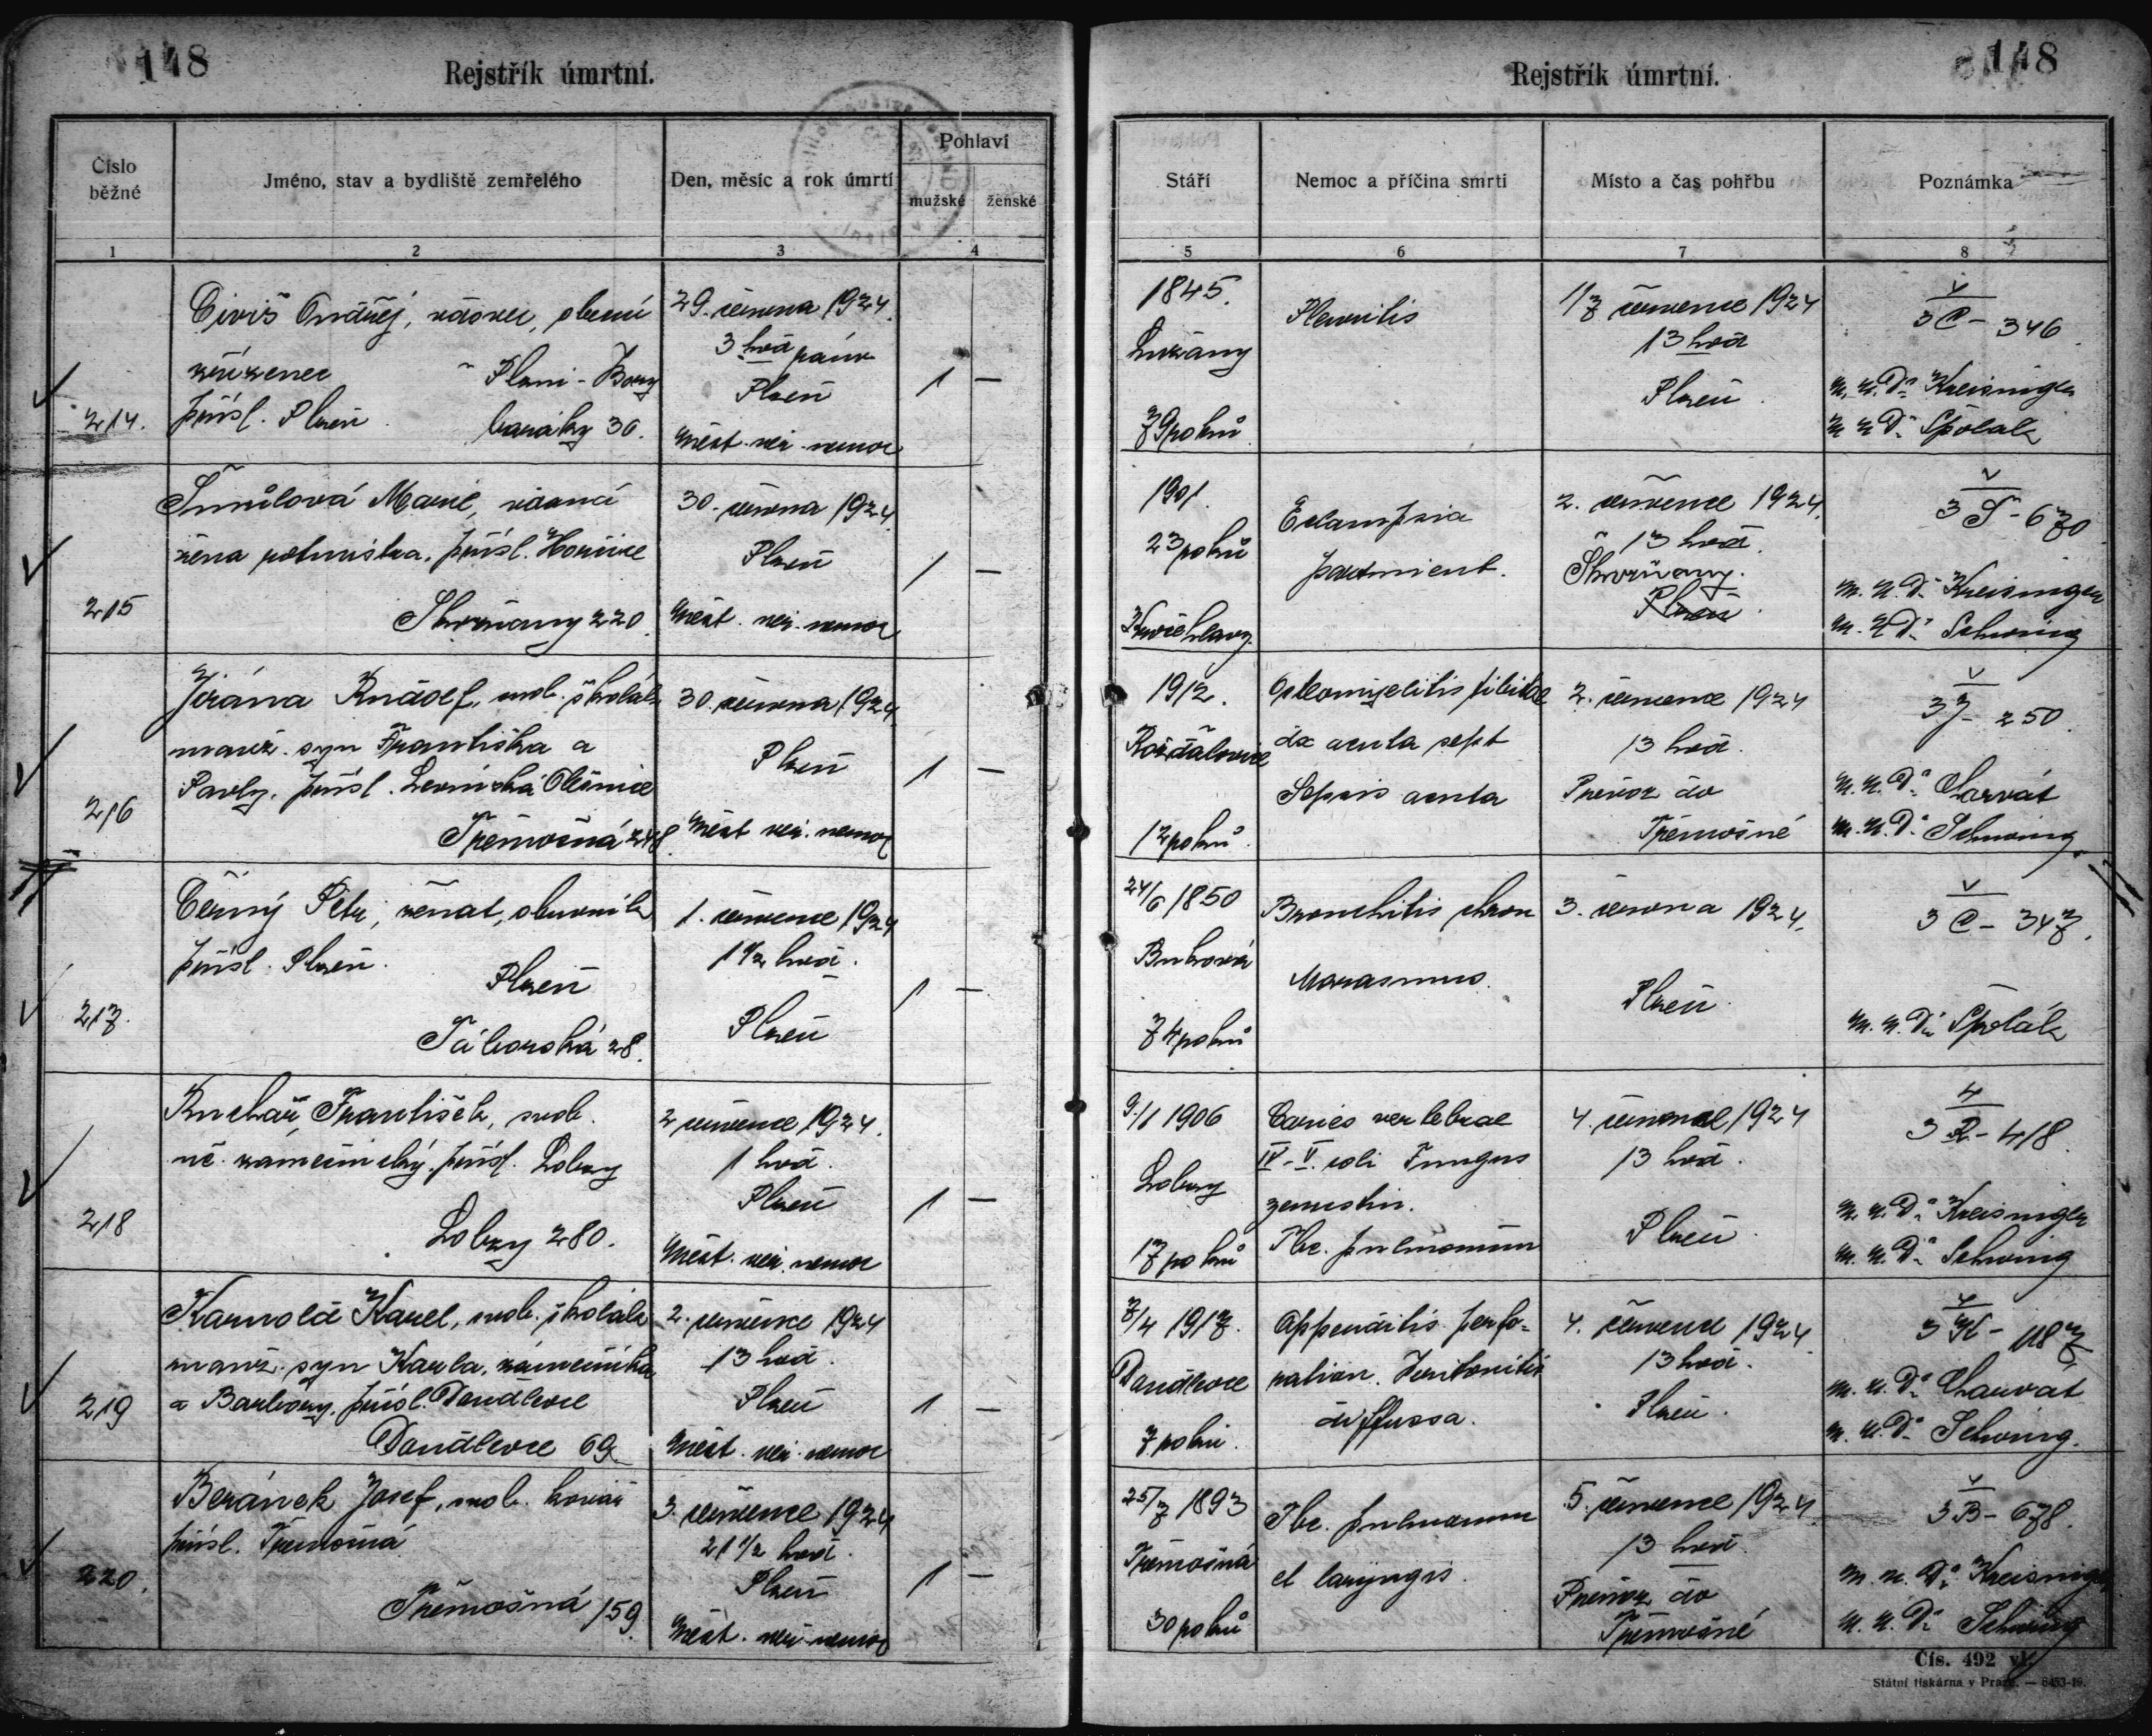 148
Rejstřík úmrtní.
Číslo běžné
Jméno, stav a bydliště zemřelého
Den, měsíc a rok úmrtí
Pohlaví
mužské
ženské
1
2
3
4
214.
Civiš Ondřej, vdovec, obecní
zřízenec Plzni - Bory
přísl. Plzeň baráky 30.
29. června 1924
3 hod
Plzeň
Měst. veř. nemoc
1 —
215
Šmůlová Marie, vdaná
žena rotmistra, přísl. Hořice
Skvrňany 220.
30. června 1924
Plzeň
Měst. veř. nemoc
1 —
216
Jirána Rudolf, svob. školák
manž. syn Františka a
Pavly, přísl. Olešnice
Třemošná 248
30. června 1924
Plzeň
Měst veř. nemoc
1 —
217.
Černý Petr, ženat, obuvník
přísl. Plzeň.
Plzeň
Táborská 28.
1. července 1924
1 1/2 hod.
Plzeň
1 —
218
Kuchař František, svob.
uč. zámečnický, přísl. Lobzy
Lobzy 280.
2 července 1924.
1 hod.
Plzeň
Měst. veř. nemoc
1 —
219
Karnold Karel, svob. školák
manž. syn Karla, zámečníka
a Barbory, přísl. Doudlevce
Doudlevce 69
2. července 1924
13 hod.
Plzeň
Měst. veř. nemoc
1 —
220.
Beránek Josef, svob. kovář
přísl. Třemošná
Třemošná 159
3. července 1924
21 1/2 hod.
Plzeň
Měst. veř. nemoc
1 —
148
Rejstřík úmrtní.
Stáří
Nemoc a příčina smrti
Místo a čas pohřbu
Poznámka
5
6
7
8
1845.
Lužany
79 roků
Pleuritis
1/7 července 1924
13 hod
Plzeň.
3 C - 346
m. u. Dr. Kreisinger
m u Dr. Špolák
1901.
23 roků
Eclampsia
parturient.
2. července 1924.
13 hod.
Skvrňany.
Plzeň.
3 Š - 670
m. u. Dr. Kreisinger
m. u. Dr. Schwing
1912.
Rožďalovice
12 roků.
Osteomyelitis tibiae
dx acuta sept
Sepsis acuta
2. července 1924
13 hod.
Převoz do
Třemošné
3 J - 250.
m. u. Dr. Charvát
m. u. Dr. Schwing
24/6 1850
Buková
74 roků
Bronchitis chron
Marasmus.
3. června 1924.
Plzeň.
3 C - 347.
m. u. Dr. Špolák
9./1 1906
Lobzy
17 roků
Caries vertebrae
IV - V. coli Fungus
Tbc. pulmonum
4. července 1924
13 hod.
Plzeň.
m. u. Dr. Kreisinger
m. u. Dr. Schwing
7/4 1917.
Doudlevce
7 roků.
Appendicitis perfo-
ration. Peritonitis
diffussa.
4. července 1924
13 hod.
Plzeň.
3 K - 1187
m. u. Dr. Charvat
m. u. Dr. Schwing.
25/7 1893
Třemošná
30 roků
Tbc. pulmonum
et laryngis.
5. července 1924
13 hod.
Převoz do
Třemošné
3 B - 678.
m. u. Dr. Kreisinger
m. u. Dr. Schwing
Čís. 492 vl.
Státní tiskárna v Praze. — 8453-19.